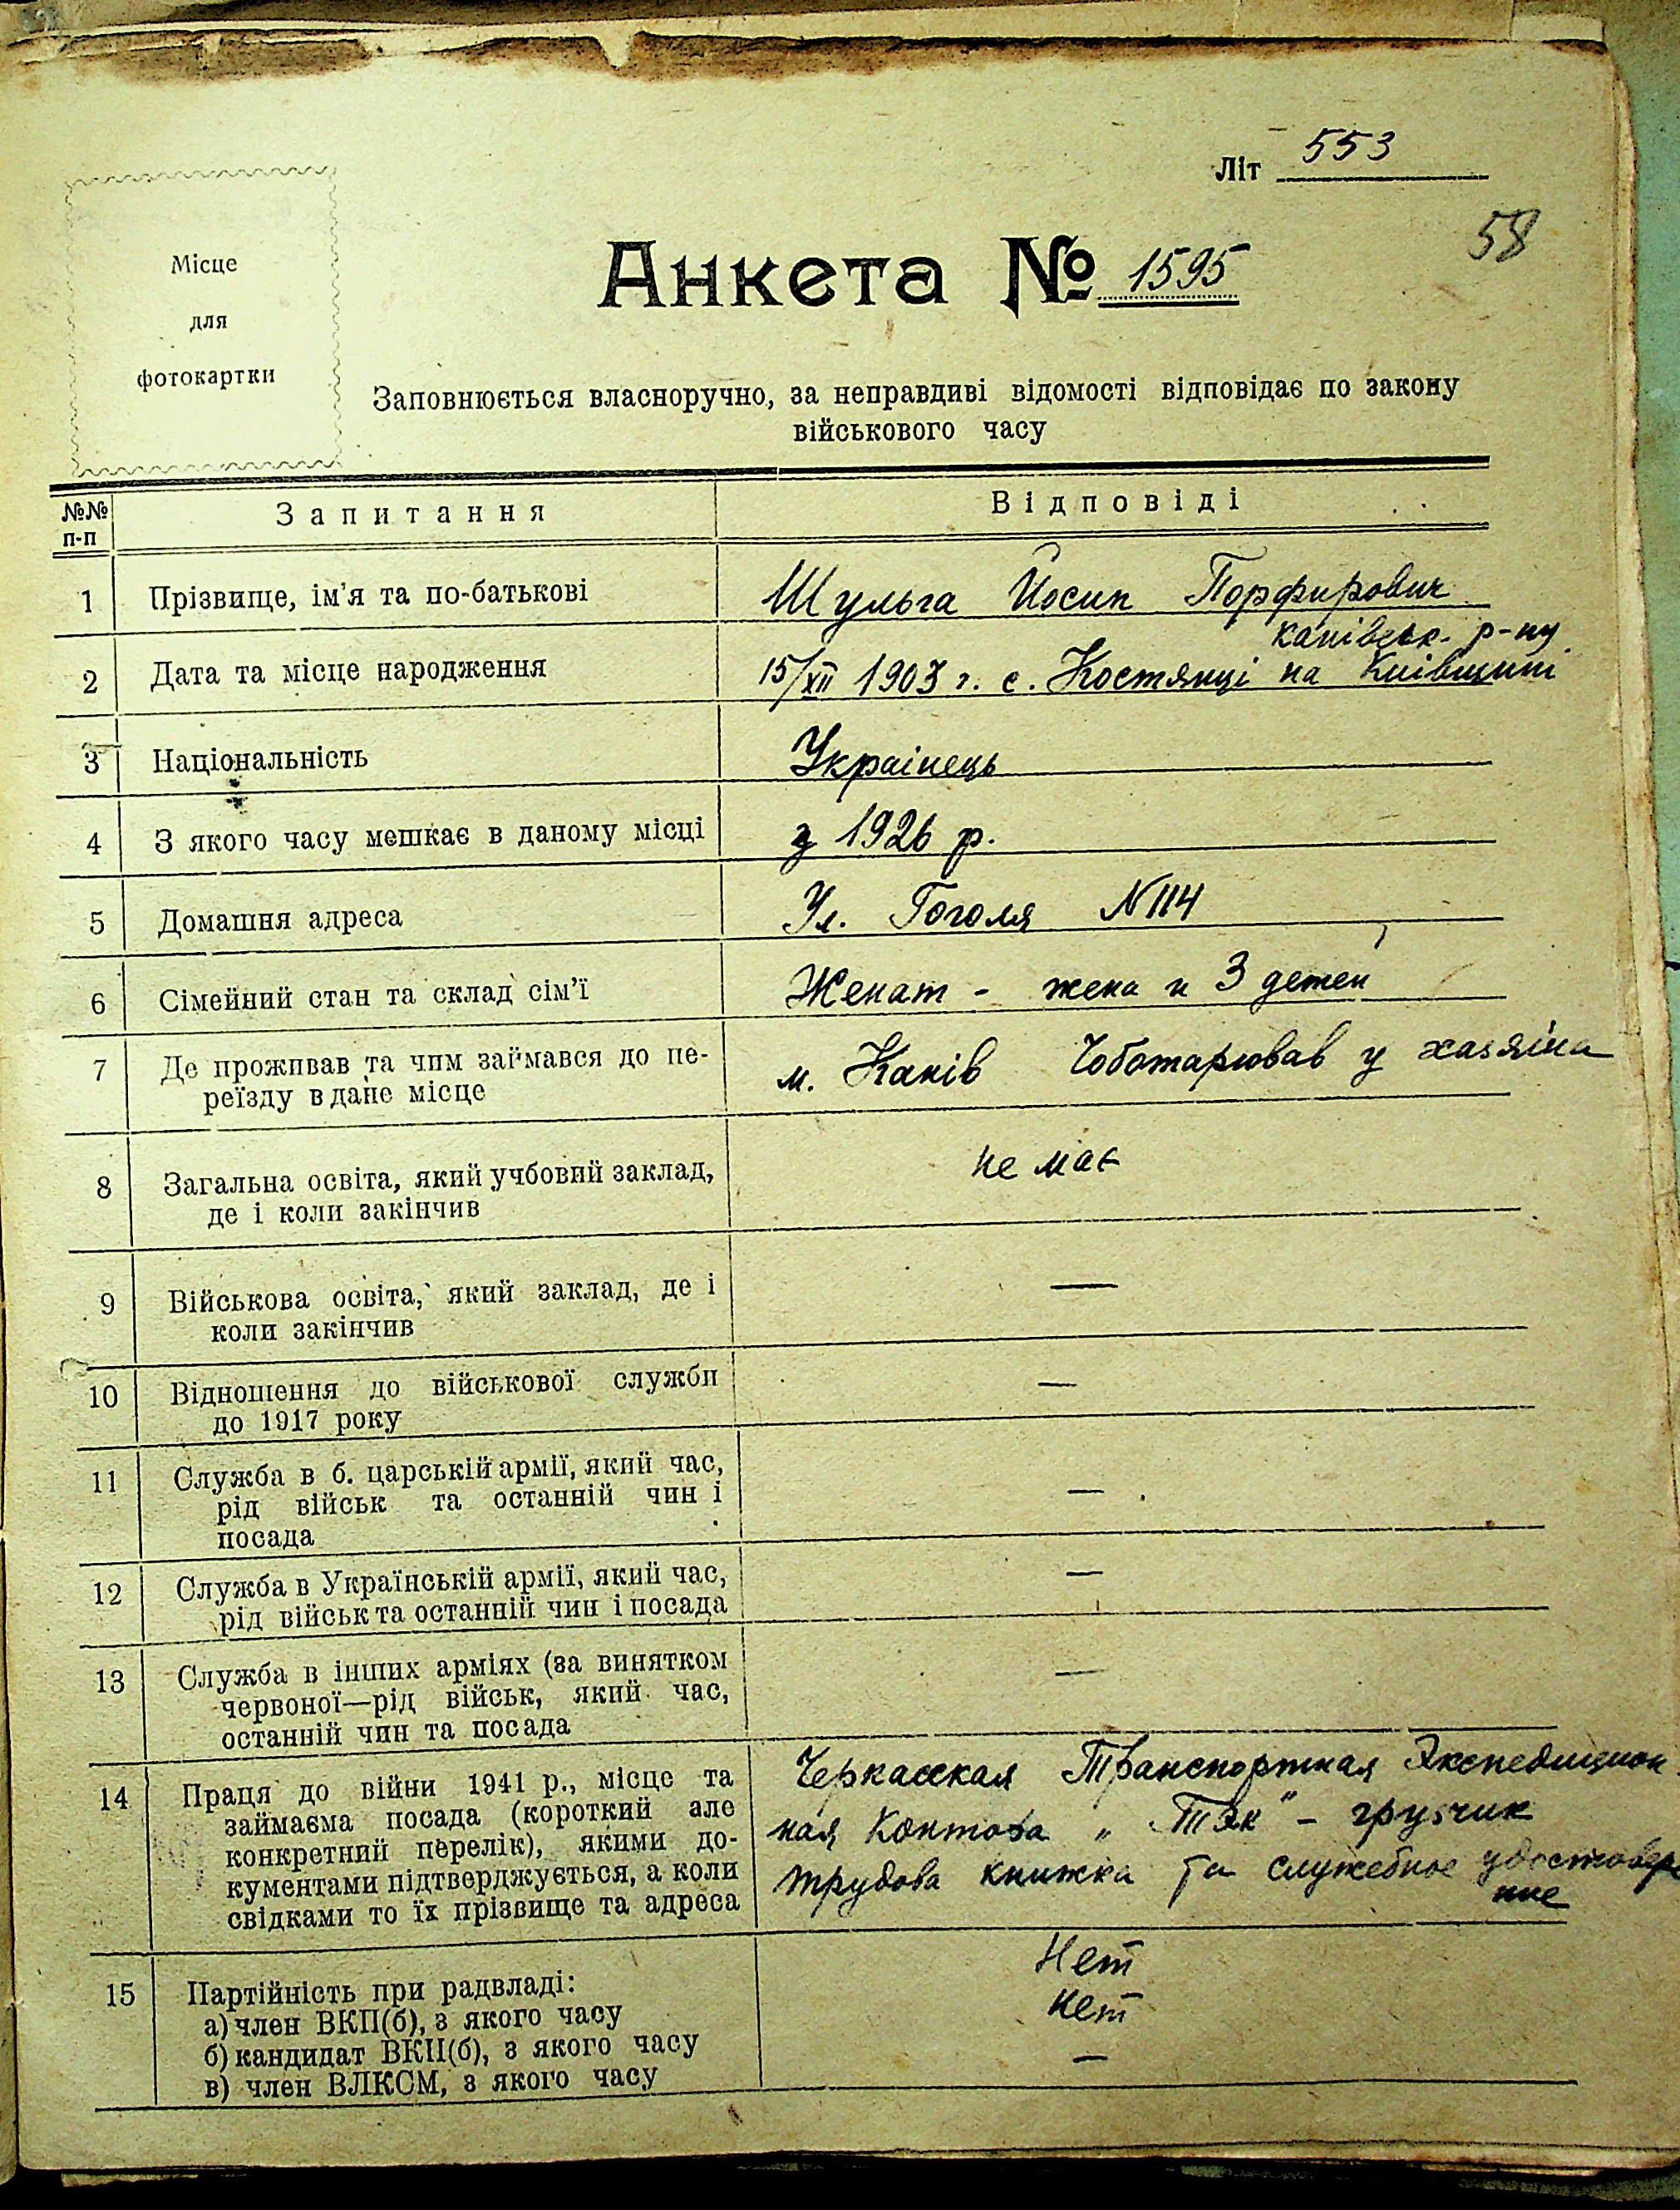 Літ 553
58
Місце
для
фотокартки
Анкета № 1595
Заповнюється власноручно, за неправдиві відомості відповідає по закону
військового часу
№№ п-п Запитання Відповіді
1 Прізвище, ім'я та по-батькові Шульга Йосип Порфирович
канівськ. р-ну
2 Дата та місце народження 15/XII 1903 г. с. Костянці на Київщині
3 Національність Украінець
4 З якого часу мешкає в даному місці з 1926 р.
5 Домашня адреса Ул. Гоголя N114
6 Сімейний стан та склад сім'ї Женат - жена и 3 детей
7 Де проживав та чим займався до пе- м. Канів Чоботарював у хазяіна
реїзду в дане місце
8 Загальна освіта, який учбовий заклад, не має
де і коли закінчив
9 Військова освіта, який заклад, де і —
коли закінчив
10 Відношення до військової служби —
до 1917 року
11 Служба в б. царській армії, який час,
рід військ та останній чин і —
посада
12 Служба в Українській армії, який час, —
рід військ та останній чин і посада
13 Служба в інших арміях (за винятком —
червоної—рід військ, який час,
останній чин та посада
14 Праця до війни 1941 р., місце та Черкасская Транспортная Экспедицион
займаєма посада (короткий але ная Контора „ТЭК" - грузчик
конкретний перелік), якими до- трудова книжка та служебное удостовере
кументами підтверджується, а коли ние
свідками то їх прізвище та адреса
15 Партійність при радвладі: Нет
а) член ВКП(б), з якого часу нет
б) кандидат ВКП(б), з якого часу —
в) член ВЛКСМ, з якого часу